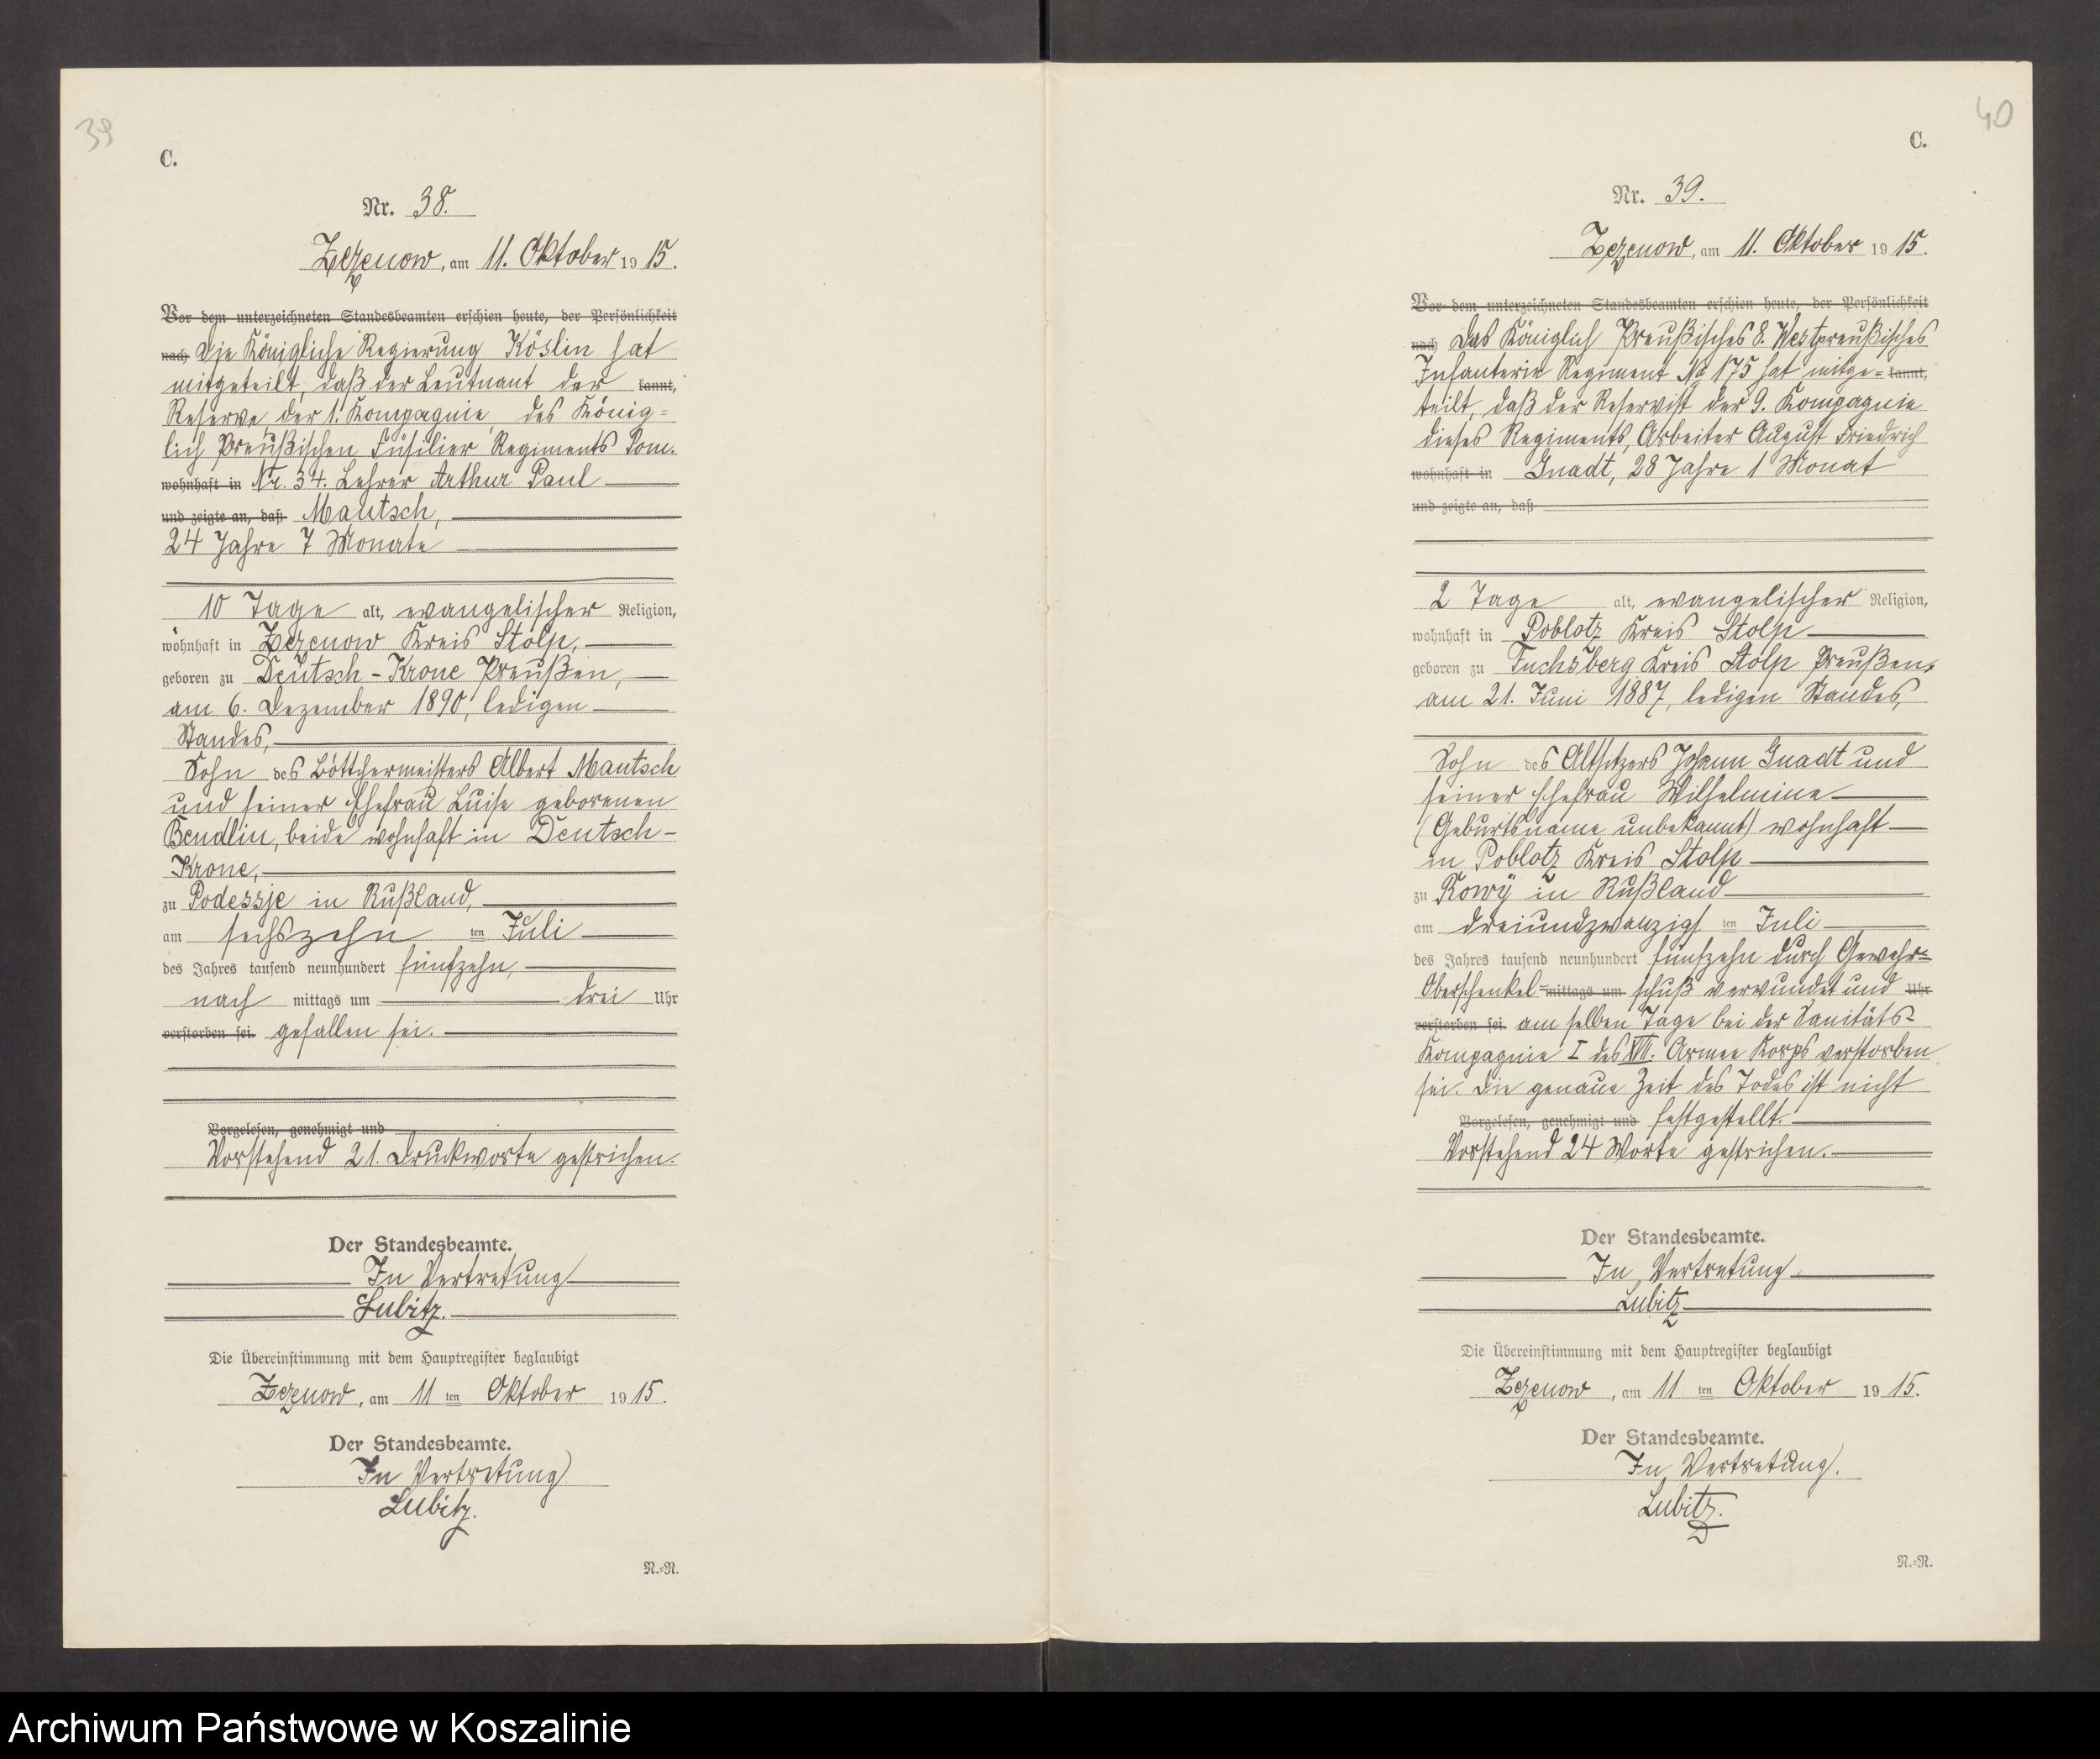 39
C.
Nr. 38.
Zezenow, am 11. Oktober 1915.
Vor dem unterzeichneten Standesbeamten erschien heute, der Persönlichkeit
nach Die Königliche Regierung Köslin hat
mitgeteilt, daß der Leutnant der kannt,
Reserve der 1. Kompagnie des König=
lich Preußischen Füsilier Regiments Pom.
wohnhaft in Nr. 34. Lehrer Arthur Paul
und zeigte an, daß Mautsch,
24 Jahre 7 Monate
10 Tage alt, evangelischer Religion,
wohnhaft in Zezenow Kreis Stolp,
geboren zu Deutsch-Krone Preußen,
am 6. Dezember 1890, ledigen
Standes,
Sohn des Böttchermeisters Albert Mautsch
und seiner Ehefrau Luise geborenen
Bendlin, beide wohnhaft in Deutsch-
Krone,
zu Podessje in Rußland,
am sechszehn ten Juli
des Jahres tausend neunhundert fünfzehn,
nach mittags um drei Uhr
verstorben sei. gefallen sei.
Vorgelesen, genehmigt und
Vorstehend 21. Druckworte gestrichen.
Der Standesbeamte.
In Vertretung
Lubitz.
Die Übereinstimmung mit dem Hauptregister beglaubigt
Zezenow, am 11 ten Oktober 1915.
Der Standesbeamte.
In Vertretung
Lubitz.
N.=R.
40
C.
Nr. 39.
Zezenow, am 11. Oktober 1915.
Vor dem unterzeichneten Standesbeamten erschien heute, der Persönlichkeit
nach Das Königlich Preußisches 8. Westpreußisches
Infanterie Regiment No 175 hat mitge= kannt,
teilt, daß der Reservist der 9. Kompagnie
dieses Regiments, Arbeiter August Friedrich
wohnhaft in Gnadt, 28 Jahre 1 Monat
und zeigte an, daß
2 Tage alt, evangelischer Religion,
wohnhaft in Poblotz Kreis Stolp
geboren zu Fuchsberg Kreis Stolp Preußen,
am 21. Juni 1887, ledigen Standes,
Sohn des Altsitzers Johann Gnadt und
seiner Ehefrau Wilhelmine
(Geburtsname unbekannt) wohnhaft
in Poblotz Kreis Stolp
zu Kowÿ in Rußland
am dreiundzwanzigs ten Juli
des Jahres tausend neunhundert fünfzehn durch Gewehr=
Oberschenkel= mittags um schuß verwundet und Uhr
verstorben sei. am selben Tage bei der Sanitäts=
Kompagnie I des XVII. Armee Korps verstorben
sei. Die genaue Zeit des Todes ist nicht
Vorgelesen, genehmigt und festgestellt.
Vorstehend 24 Worte gestrichen.
Der Standesbeamte.
In Vertretung
Lubitz
Die Übereinstimmung mit dem Hauptregister beglaubigt
Zezenow, am 11 ten Oktober 1915.
Der Standesbeamte.
In Vertretung.
Lubitz.
N.=R.
Archiwum Państwowe w Koszalinie